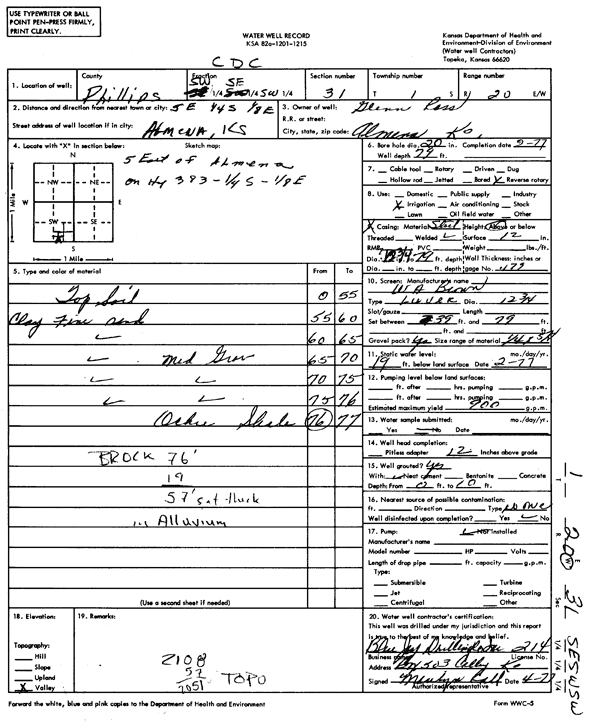 USE TYPEWRITER OR BALL
POINT PEN-PRESS FIRMLY,
PRINT CLEARLY.
WATER WELL RECORD
KSA 82a-1201-1215
Kansas Department of Health and
Environment-Division of Environment
(Water well Contractors)
Topeka, Kansas 66620
CDC
1. Location of well:
County
Phillips
Fraction
SW SE
1/4 1/4 SW 1/4
Section number
31
Township number
T 1 S
Range number
R 20 E/W
2. Distance and direction from nearest town or city: 5E 1/4S 1/8E
Street address of well location if in city: Almena, KS
3. Owner of well: Glenn
R.R. or street:
City, state, zip code: Almena Ks.
4. Locate with "X" in section below:
Sketch map:
N
NW NE
W E
SW SE
X
S
1 Mile
1 Mile
5 East of Almena
on Hy 383 - 1/4 S - 1/8 E
6. Bore hole dia. 20 in. Completion date 2-77
Well depth 79 ft.
7. Cable tool Rotary Driven Dug
Hollow rod Jetted Bored X Reverse rotary
8. Use: Domestic Public supply Industry
X Irrigation Air conditioning Stock
Lawn Oil field water Other
X Casing: Material Steel Height: Above or below
Threaded Welded ✓ Surface 12 in.
RMB PVC Weight lbs./ft.
Dia. 12 3/4 to 79 ft. depth Wall Thickness: inches or
Dia. in. to ft. depth gage No. .179
5. Type and color of material From To
Top Soil 0 55
Clay Fine sand 55 60
✓ 60 65
✓ Med Grav 65 70
✓ ✓ 70 75
✓ ✓ 75 76
Ochre Shale 76 77
BROCK 76'
19
57' sat thick
in Alluvium
(Use a second sheet if needed)
10. Screen: Manufacturer's name
W A Brown
Type Luver Dia. 12 3/4
Slot/gauze Length
Set between 39 ft. and 79 ft.
ft. and ft.
Gravel pack? yes Size range of material
11. Static water level: mo./day/yr.
19 ft. below land surface Date 2-77
12. Pumping level below land surfaces:
ft. after hrs. pumping g.p.m.
ft. after hrs. pumping g.p.m.
Estimated maximum yield 900 g.p.m.
13. Water sample submitted: mo./day/yr.
Yes No Date
14. Well head completion:
Pitless adapter 12 Inches above grade
15. Well grouted? yes
With: Neat cement Bentonite Concrete
Depth: From 0 ft. to 10 ft.
16. Nearest source of possible contamination:
ft. Direction Type None
Well disinfected upon completion? Yes ✓ No
17. Pump: ✓ Not installed
Manufacturer's name
Model number HP Volts
Length of drop pipe ft. capacity g.p.m.
Type:
Submersible Turbine
Jet Reciprocating
Centrifugal Other
18. Elevation:
Topography:
Hill
Slope
Upland
X Valley
19. Remarks:
2108
57
2051 TOPO
20. Water well contractor's certification:
This well was drilled under my jurisdiction and this report
is true to the best of my knowledge and belief.
Blue Jay Drilling Inc 214
Business name License No.
Address Bx 503 Ks
Signed Date 4-77
Authorized representative
Forward the white, blue and pink copies to the Department of Health and Environment
Form WWC-5
T 1
R 20 E W
Sec 31
1/4 1/4 1/4
SESWSW